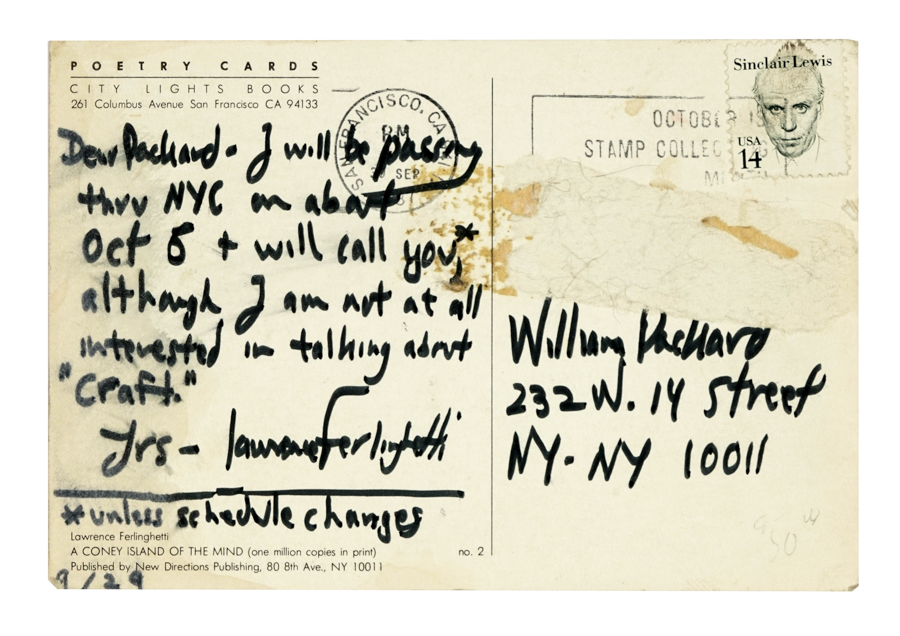 POETRY CARDS
CITY LIGHTS BOOKS
261 Columbus Avenue San Francisco CA 94133
Dear Packard - I will be passing
thru NYC on about
Oct 5 + will call you,*
although I am not at all
interested in talking about
"Craft."
Yrs - Lawrence Ferlinghetti
*unless schedule changes
Lawrence Ferlinghetti
A CONEY ISLAND OF THE MIND (one million copies in print)
no. 2
Published by New Directions Publishing, 80 8th Ave., NY 10011
9/29
SAN FRANCISCO, CA
PM
SEP
OCTOBER IS
STAMP COLLEC
Sinclair Lewis
USA
14
William Packard
232 W. 14 Street
NY - NY 10011